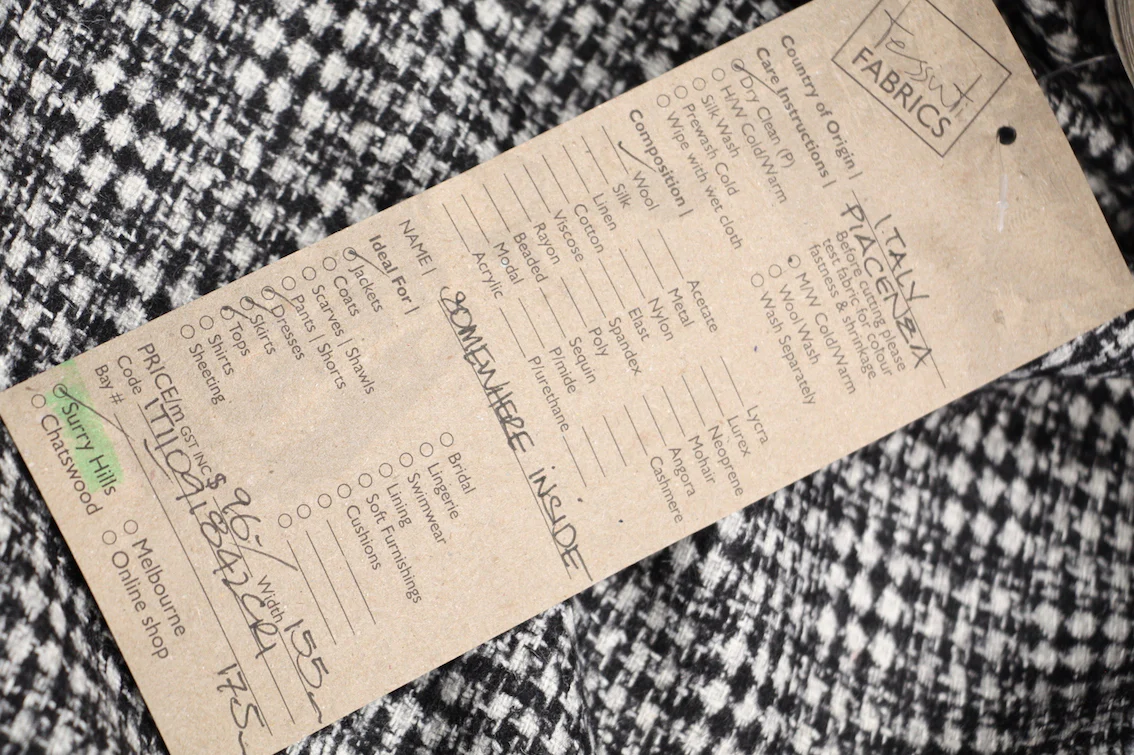 Tessuti
FABRICS
Country of Origin | ITALY
PIACENZA
Care Instructions |
Before cutting please
test fabric for colour
fastness & shrinkage
Dry Clean (P)
H/W Cold/Warm
Silk Wash
Prewash Cold
Wipe with wer cloth
M/W Cold/Warm
Wool Wash
Wash Separately
Composition |
Wool
Silk
Linen
Cotton
Viscose
Rayon
Beaded
Modal
Acrylic
Acetate
Metal
Nylon
Elast
Spandex
Poly
Sequin
P/mide
P/urethane
Lycra
Lurex
Neoprene
Mohair
Angora
Cashmere
NAME | SOMEWHERE INSIDE
Ideal For |
Jackets
Coats
Scarves | Shawls
Pants | Shorts
Dresses
Skirts
Tops
Shirts
Sheeting
Bridal
Lingerie
Swimwear
Lining
Soft Furnishings
Cushions
PRICE/m GST INC $ 96/ Width 155
Code
Bay #
Surry Hills
Chatswood
Melbourne
Online shop